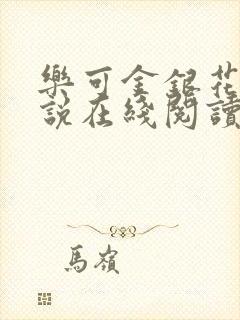 樂可金銀花
說在綫閱讀
馬嶺